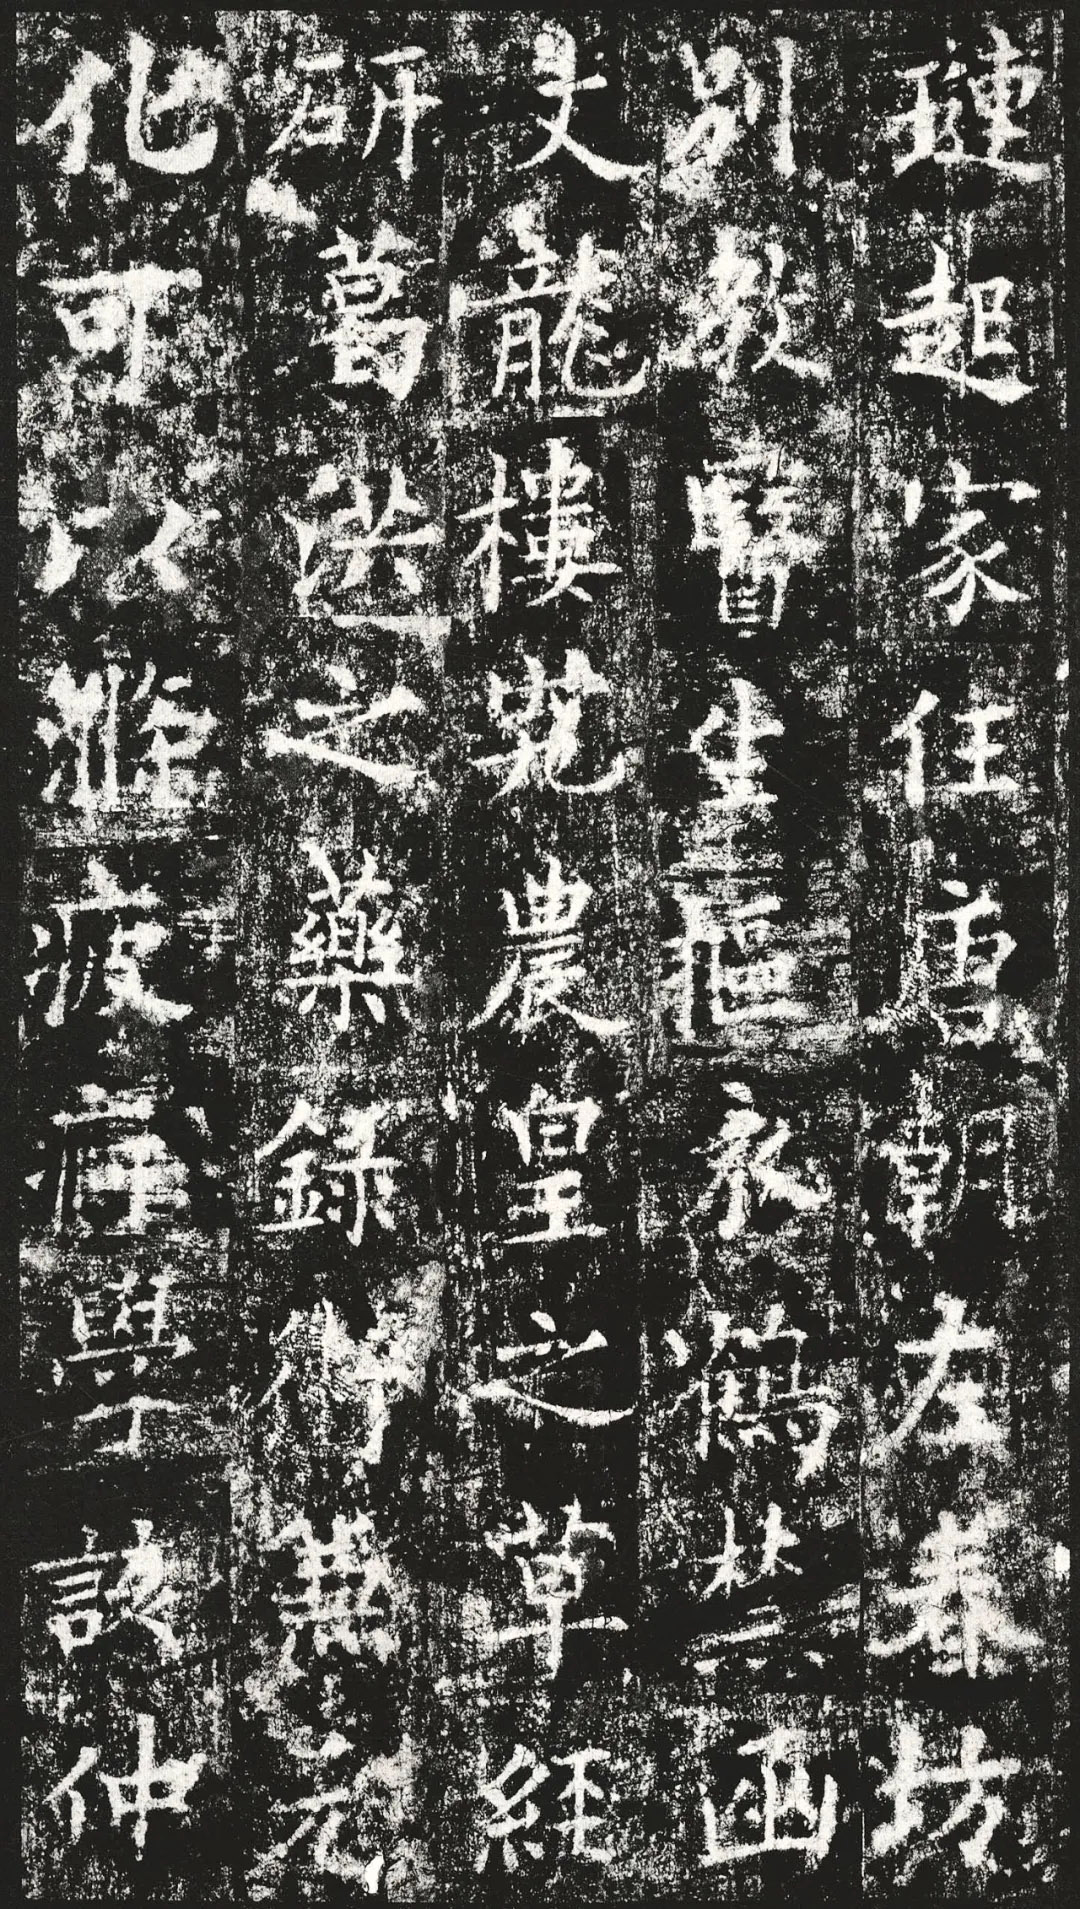 璉起家任唐朝左春坊
别教醫生摳衣鶴禁函
丈龍樓農皇之草經
研葛洪之藥錄術兼元
化可以滌疲學該仲